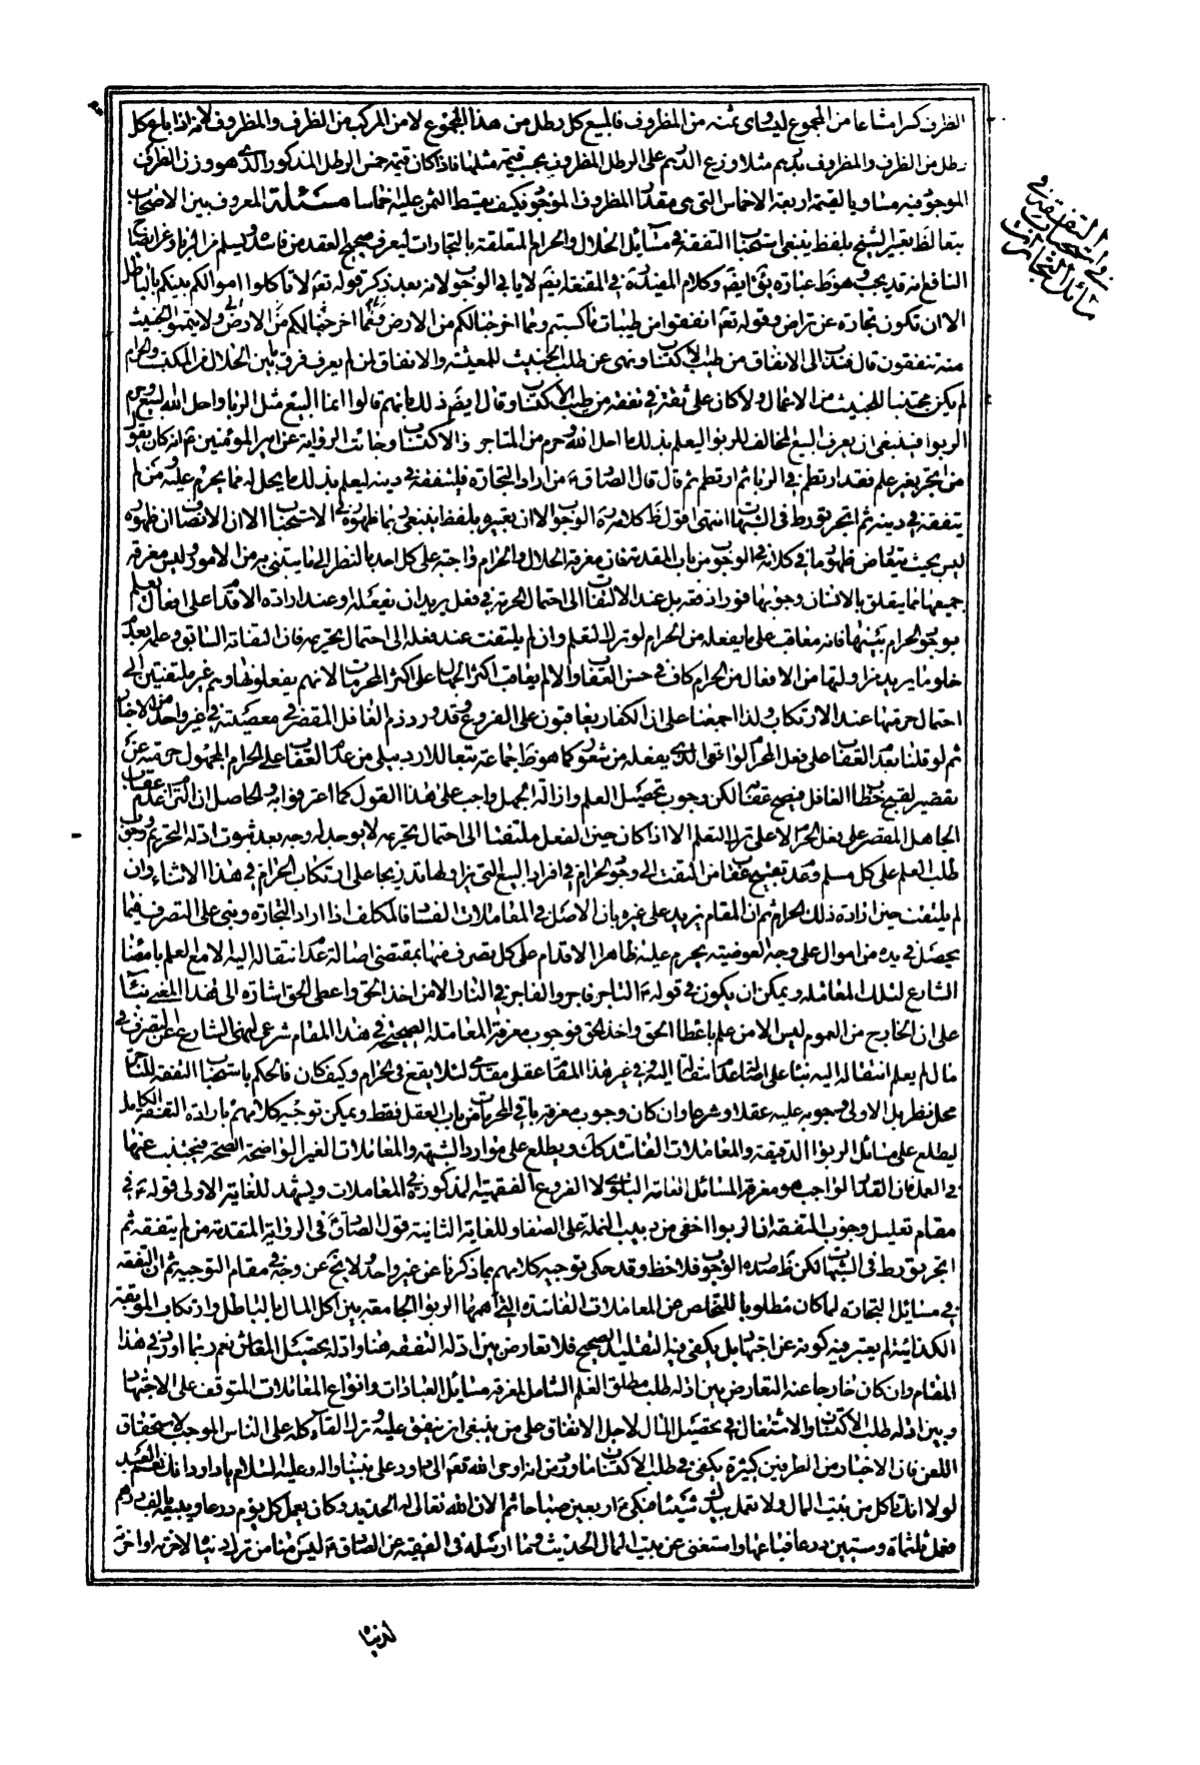 الظرف كسرا مشاعا من المجموع ليساوى ثمنه من المظروف فالمبيع كل رطل من هذا المجموع لا من المركب من الظرف والمظروف لأنه اذا باع كل
رطل من الظرف والمظروف بدرهم مثلا وزع الدرهم على الرطل المظروف بحسب قيمة مثلهما فاذا كان قيمة خمس الرطل المذكور الذى هو وزن الظرف
الموجود فيه مساويا لقيمة اربعة الاخماس التى هى مقدار المظروف الموجود فكيف يقسط الثمن عليه اخماسا مسئلة المعروف بين الاصحاب
تبعا لظ تعبير الشيخ بلفظ ينبغى استحباب التفقه فى مسائل الحلال والحرام المتعلقة بالتجارات ليعرف صحيح العقد من فاسده ويسلم من الربا وعن ايضاح
النافع انه قد يجب وهو ظ عبارة يق ايضا وكلام المفيد ره فى المقنعه ايضم لا يابى الوجوب لانه بعد ذكر قوله تعم لا تأكلوا اموالكم بينكم بالباطل
الا ان تكون تجارة عن تراض وقوله تعم انفقوا من طيبات ما كسبتم ومما اخرجنا لكم من الارض ولا تيمموا الخبيث
منه تنفقون قال فندب الى الانفاق من طيب الاكتساب ونهى عن طلب الخبيث للمعيشة والانفاق فمن لم يعرف فرق ما بين الحلال من المكتسب والحرام
لم يكن مجتنبا للخبيث من الاعمال ولا كان على ثقة فى نفقة من طيب الاكتساب وقال ايضم ذلك بانهم قالوا انما البيع مثل الربا واحل الله البيع وحرم
الربوا فينبغى ان يعرف البيع المخالف للربوا ليعلم بذلك ما احل الله وحرم من المتاجر والاكتساب وجائت الرواية عن امير المؤمنين ع انه كان يقول
من اتجر بغير علم فقد ارتطم فى الربا ثم ارتطم ثم قال قال الصادق ع من اراد التجارة فليتفقه فى دينه ليعلم بذلك ما يحل له مما يحرم عليه ومن لم
يتفقه فى دينه ثم اتجر تورط فى الشبهات انتهى اقول ظ كلامه ره الوجوب الا ان تعبيره بلفظ ينبغى ربما ظهوره فى الاستحباب الا ان الانصاف ان ظهوره
ليس بحيث يعارض ظهور ما فى كلامه فى الوجوب من باب المقدمة فان معرفة الحلال والحرام واجبة على كل احد بالنظر الى ما يبتلى به من الامور وليس معرفة
جميعها مما يتعلق بالانسان وجوبها فورا دفعة بل عند الالتفات الى احتمال الحرمة فى فعل يريد ان يفعله او عند ارادة الاقدام على افعال يعلم
بوجود الحرام بينها فانه معاقب على ما يفعله من الحرام لو ترك التعلم وان لم يلتفت عند فعله الى احتمال تحريمه فان التفاته السابق وعلمه بعدم
خلو ما يريد مزاولتها من الافعال من الحرام كاف فى حسن العقاب والا لم يعاقب اكثر الجهال على اكثر المحرمات لانهم يفعلونها وهم غير ملتفتين الى
احتمال حرمتها عند الارتكاب ولذا اجمعنا على ان الكفار يعاقبون على الفروع وقد ورد ذم الغافل المقصر فى معصيته فى غير واحد من الاخبار
ثم لو قلنا بعدم العقاب على فعل المحرم الواقعى الذى يفعله من غير شعور كما هو ظ جماعة تبعا للاردبيلى من عدم العقاب على الحرام المجهول حرمته عن
تقصير لقبح خطاب الغافل فيقبح عقابه لكن وجوب تحصيل العلم وازالة الجهل واجب على هذا القول كما اعترفوا به والحاصل ان التزام عدم عقاب
الجاهل المقصر على فعل الحرام الا على ترك التعلم الا اذا كان حين الفعل ملتفتا الى احتمال تحريمه لا يوجد له وجه بعد ثبوت ادلة التحريم وثبوت
طلب العلم على كل مسلم وعدم تقبيح عقاب من التفت الى وجود الحرام فى افراد البيع التى يزاولها تدريجا على ارتكاب الحرام فى هذا الاثناء وان
لم يلتفت حين ارادة ذلك الحرام ثم ان المقام يزيد على غيره بان الاصل فى المعاملات الفساد فالمكلف اذا اراد التجارة وبنى على التصرف فيما
يحصل فى يده من اموال على وجه العوضية يحرم عليه ظاهرا الاقدام على كل تصرف منها بمقتضى اصالة عدم انتقاله اليه الا مع العلم بامضاء
الشارع لتلك المعاملة ويمكن ان يكون فى قوله ع التاجر فاجر والفاجر فى النار الا من اخذ الحق واعطى الحق اشارة الى هذا المعنى بناء
على ان الخارج من العموم ليس الا من علم باعطاء الحق واخذ الحق فوجوب معرفة المعاملة الصحيحة فى هذا المقام شرعى لنهى الشارع عن التصرف فى
مال لم يعلم انتقاله اليه بناء على اصالة عدم انتقاله اليه وفى غير هذا المقام عقلى مقدمى لئلا يقع فى الحرام وكيف كان فالحكم باستحباب التفقه للتاجر
محل نظر بل الاولى وجوبه عليه عقلا وشرعا وان كان وجوب معرفة باقى المحرمات من باب العقل فقط ويمكن توجيه كلامهم بارادة التفقه الكامل
ليطلع على مسائل الربوا الدقيقة والمعاملات الفاسدة كك ويطلع على موارد الشبهة والمعاملات الغير الواضحة الصحة فيجتنب عنها
فى العمل فان القدر الواجب هو معرفة المسائل العامة البلوى لا الفروع الفقهية المذكورة فى المعاملات ويشهد للغاية الاولى قوله ع فى
مقام تعليل وجوب التفقه ان الربوا اخفى من دبيب النملة على الصفا وللغاية الثانية قول الصادق ع فى الرواية المتقدمة من لم يتفقه ثم
اتجر تورط فى الشبهات لكن ظ صدره الوجوب فلاحظ وقد حكى توجيه كلامهم بما ذكرنا عن غير واحد ولا يخ عن وجه فى مقام التوجيه ثم ان التفقه
فى مسائل التجارة لما كان مطلوبا للتخلص عن المعاملات الفاسدة التى اهمها الربوا الجامعة بين اكل المال بالباطل وارتكاب الموبقة
الكذائية لم يعتبر فيه كونه عن اجتهاد بل يكفى فيه التقليد الصحيح فلا تعارض بين ادلة التفقه هنا وادلة تحصيل المعاش نعم ربما اورد فى هذا
المقام وان كان خارجا عنه التعارض بين ادلة طلب مطلق العلم الشامل لمعرفة مسائل العبادات وانواع المعاملات المتوقف على الاجتهاد
وبين ادلة طلب الاكتساب والاشتغال فى تحصيل المال لاجل الانفاق على من ينبغى ان ينفق عليه وترك القاء كله على الناس الموجب لاستحقاق
اللعن فان الاخبار من الطرفين كثيرة يكفى فى طلب الاكتساب ما ورد من ان اوحى الله تعم الى داود على نبينا واله وعليه السلام يا داود انك نعم العبد
لولا انك تاكل من بيت المال ولا تعمل بيدك شيئا فبكى ع اربعين صباحا ثم الان الله تعالى له الحديد وكان يعمل كل يوم درعا ويبيعه بالف درهم
فعمل ثلثمأة وستين درعا فباعها واستغنى عن بيت المال الحديث وما ارسله فى الفقيه عن الصادق ع ليس منا من ترك دنياه لاخرته او اخرته
لدنياه